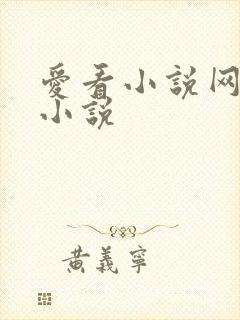 愛看小説网
小説
黄義寧